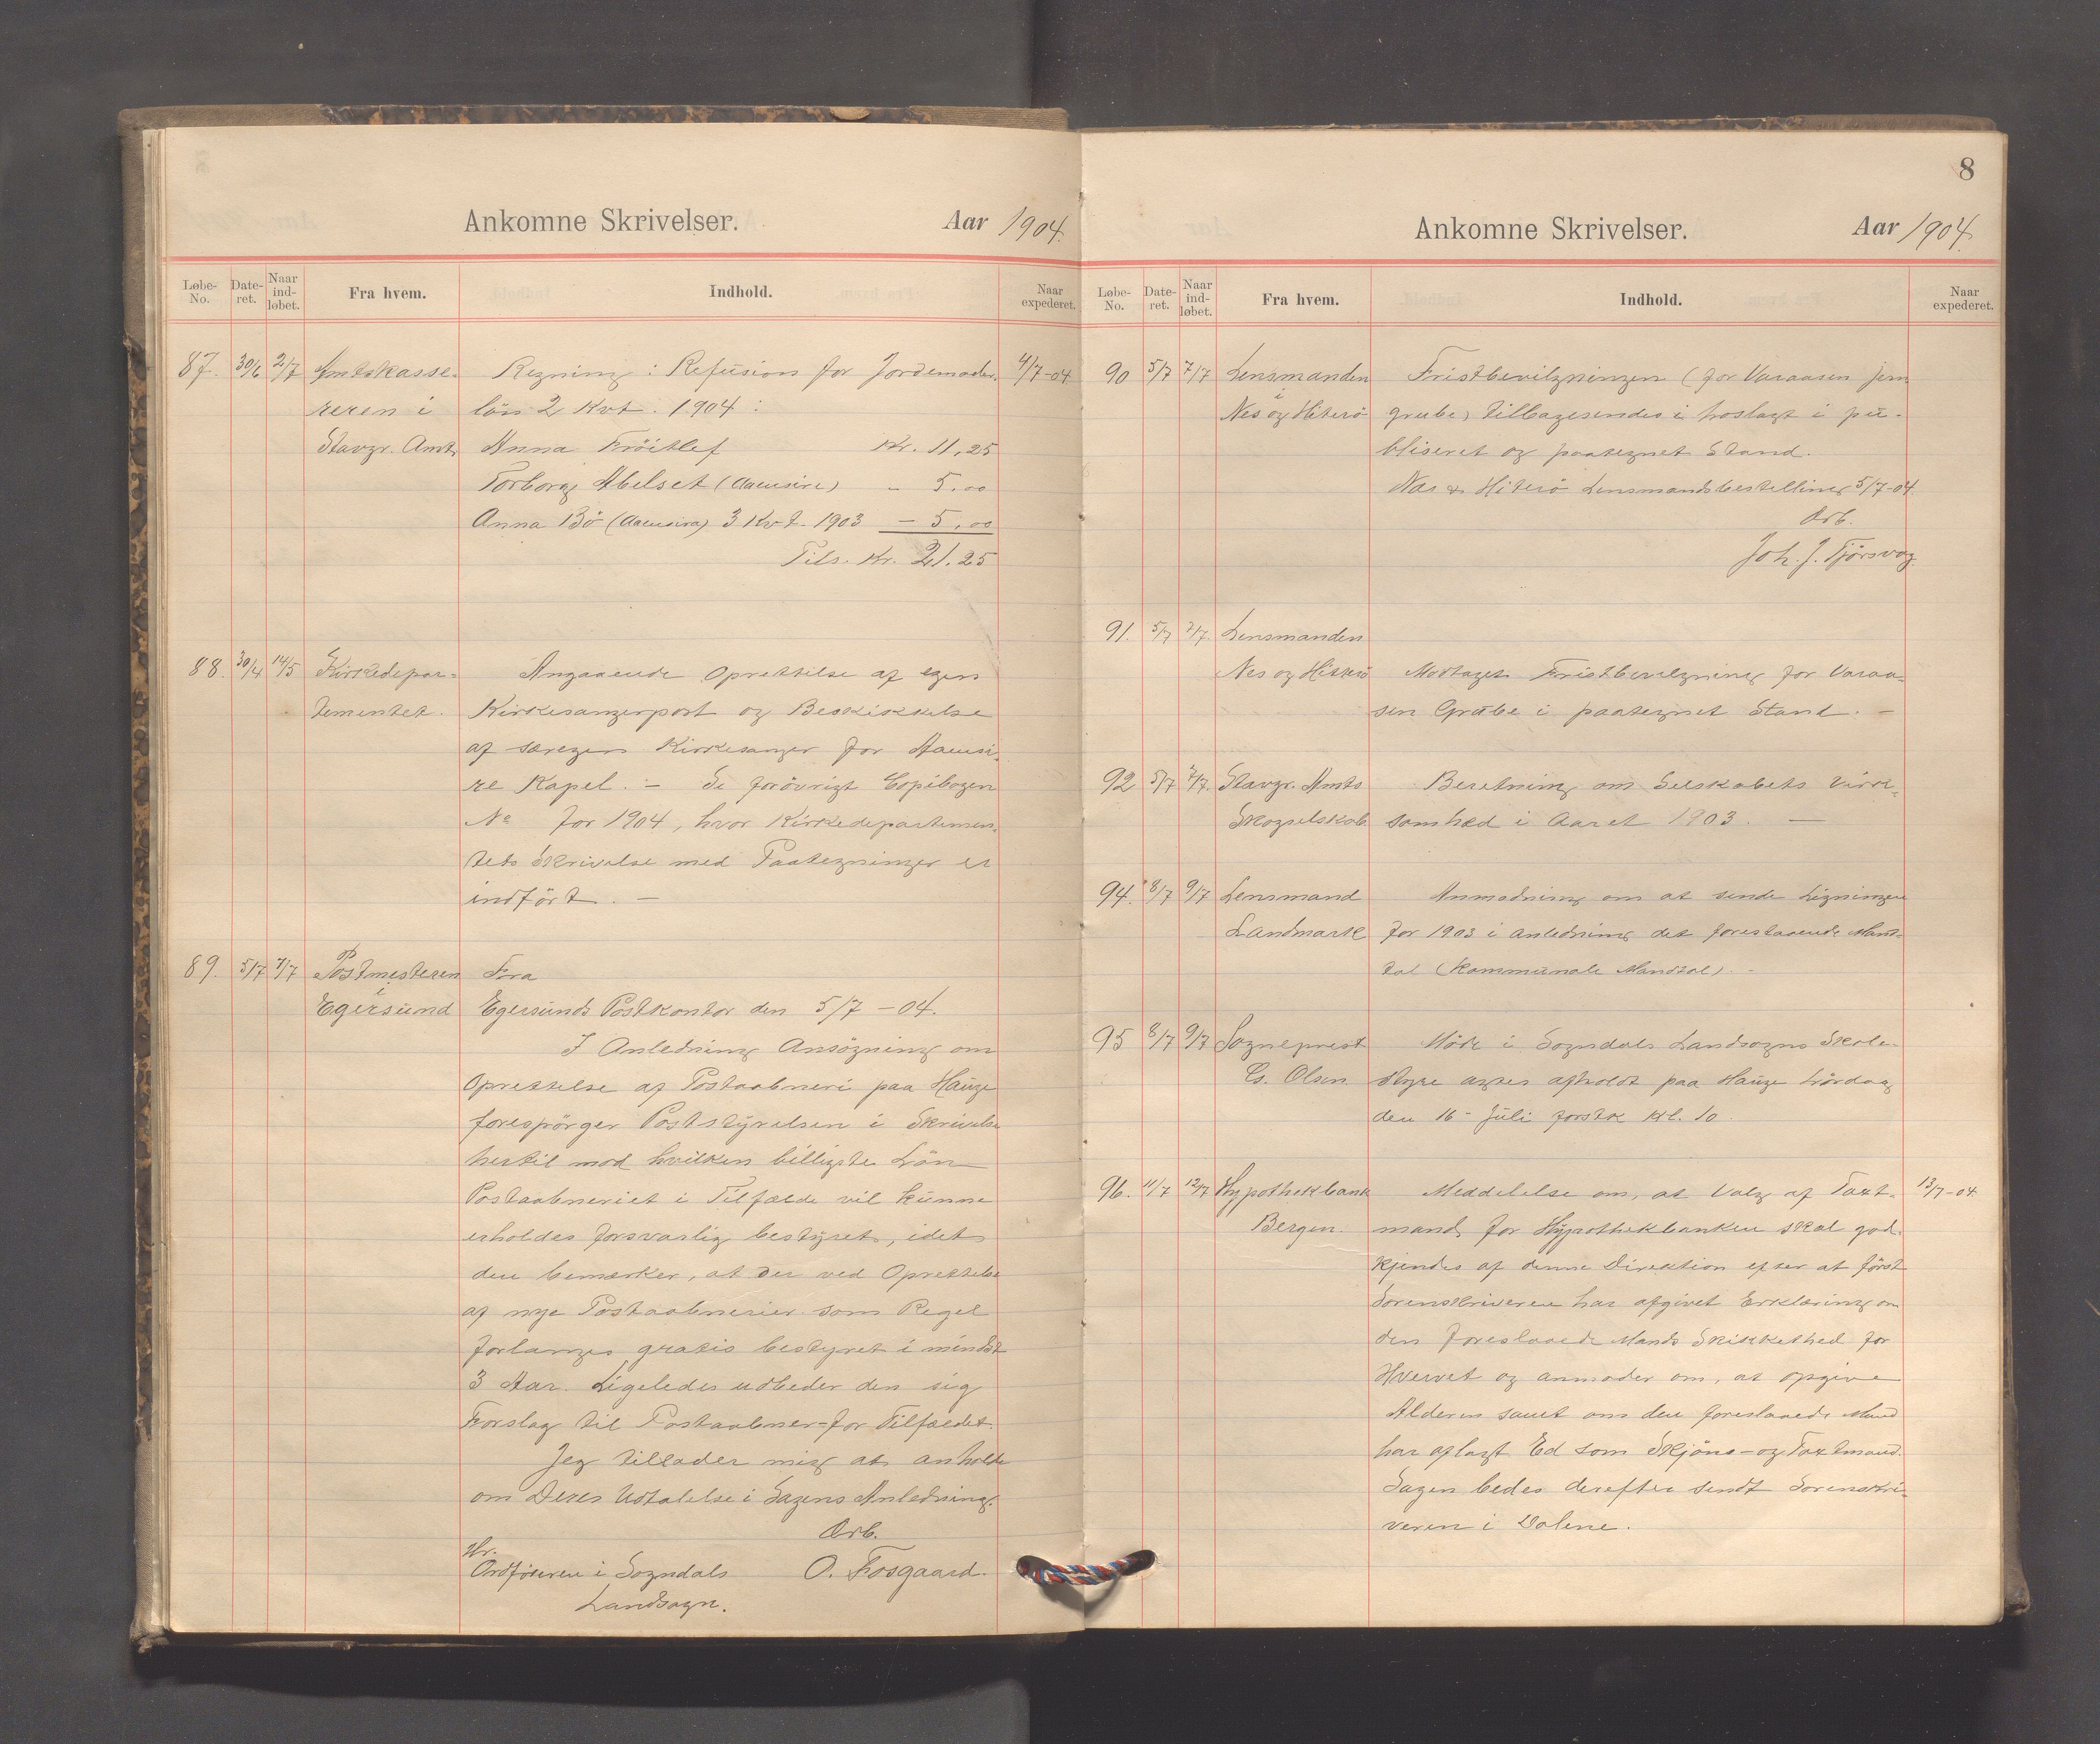 Ankomne Skrivelser. Aar 1904.
Løbe-No. Dateret. Naar indløbet. Fra hvem. Indhold. Naar expederet.
87. 30/6 2/7 Amtskasse- Regning: Refusion for Jordemoder- 4/7-04
reren i løn 2 Kvt. 1904:
Stavgr. Amt Anna Fröitlef Kr. 11,25
Torborg Abelset (Aaensire) - 5,00
Anna Bö (Aaensira) 3 Kvt. 1903 - 5,00
Tils. Kr. 21.25
88. 30/4 14/5 Kirkedepar- Angaaende Oprettelse af egen
tementet. Kirkesangerpost og Beskikkelse
af særegen Kirkesanger for Aaensi-
re Kapel. - Se forövrigt Copibogen
No for 1904, hvor Kirkedepartemen-
tets Skrivelse med Paategninger er
indfört. -
89. 5/7 7/7 Postmesteren Fra
i
Egersund Egersunds Postkontor den 5/7 - 04.
I Anledning Ansögning om
Oprettelse af Postaabneri paa Hauge
forespörger Poststyrelsen i Skrivelse
hertil mod hvilken billigste Lön
Postaabneriet i Tilfælde vil kunne
erholdes forsvarlig bestyret, idet
den bemærker, at der ved Oprettelse
af nye Postaabnerier som Regel
forlanges gratis bestyret i mindst
3 Aar. Ligeledes udbeder den sig
Forslag til Postaabner - for Tilfældet.
Jeg tillader mig at anholde
om Deres Udtalelse i Sagens Anledning.
Ærb.
Hr.
Ordföreren i Sogndals O. Fosgaard.
Landsogn.
8
Ankomne Skrivelser. Aar 1904.
Løbe-No. Dateret. Naar indløbet. Fra hvem. Indhold. Naar expederet.
90 5/7 7/7 Lensmanden Fristbevilgningen (for Varaasen jern
i
Nes og Hiterö grube) tilbagesendes i hoslagt i pu-
bliseret og paategnet Stand.
Nes & Hiterö Lensmandsbestilling 5/7-04
Ærb.
Joh. J. Tjörsvag
91. 5/7 7/7. Lensmanden
Nes og Hitterö Modtaget Fristbevilgning for Varaa-
sen Grube i paategnet Stand. -
92 5/7 7/7. Stavgr. Amts Beretning om Selskabets Virk-
Skogselskab somhed i Aaret 1903. -
94. 8/7 9/7 Lensmand Anmodning om at sende Ligningen
Landmark for 1903 i anledning det forestaaende Mand-
tal (Kommunale Mandtal). -
95 8/7 9/7 Sogneprest Möde i Sogndals Landsogns Skole-
Cs. Olsen styre agtes afholdt paa Hauge Lördag
den 16 - Juli förstk Kl. 10.
96. 11/7 12/7 Hypothekbank Meddelelse om, at Valg af Taxt- 13/7-04
Bergen. mand for Hypothekbanken skal god-
kjendes af denne Direktion efter at först
Sorenskriveren har afgivet Erklæring om
den foreslaaede Mands Skikkethed for
Hvervet og anmoder om, at opgive
Alderen samt om den foreslaaede Mand
har aflagt Ed som Skjöns- og Taxtmand.
Sagen bedes derefter sendt Sorenskri-
veren i Dalene.